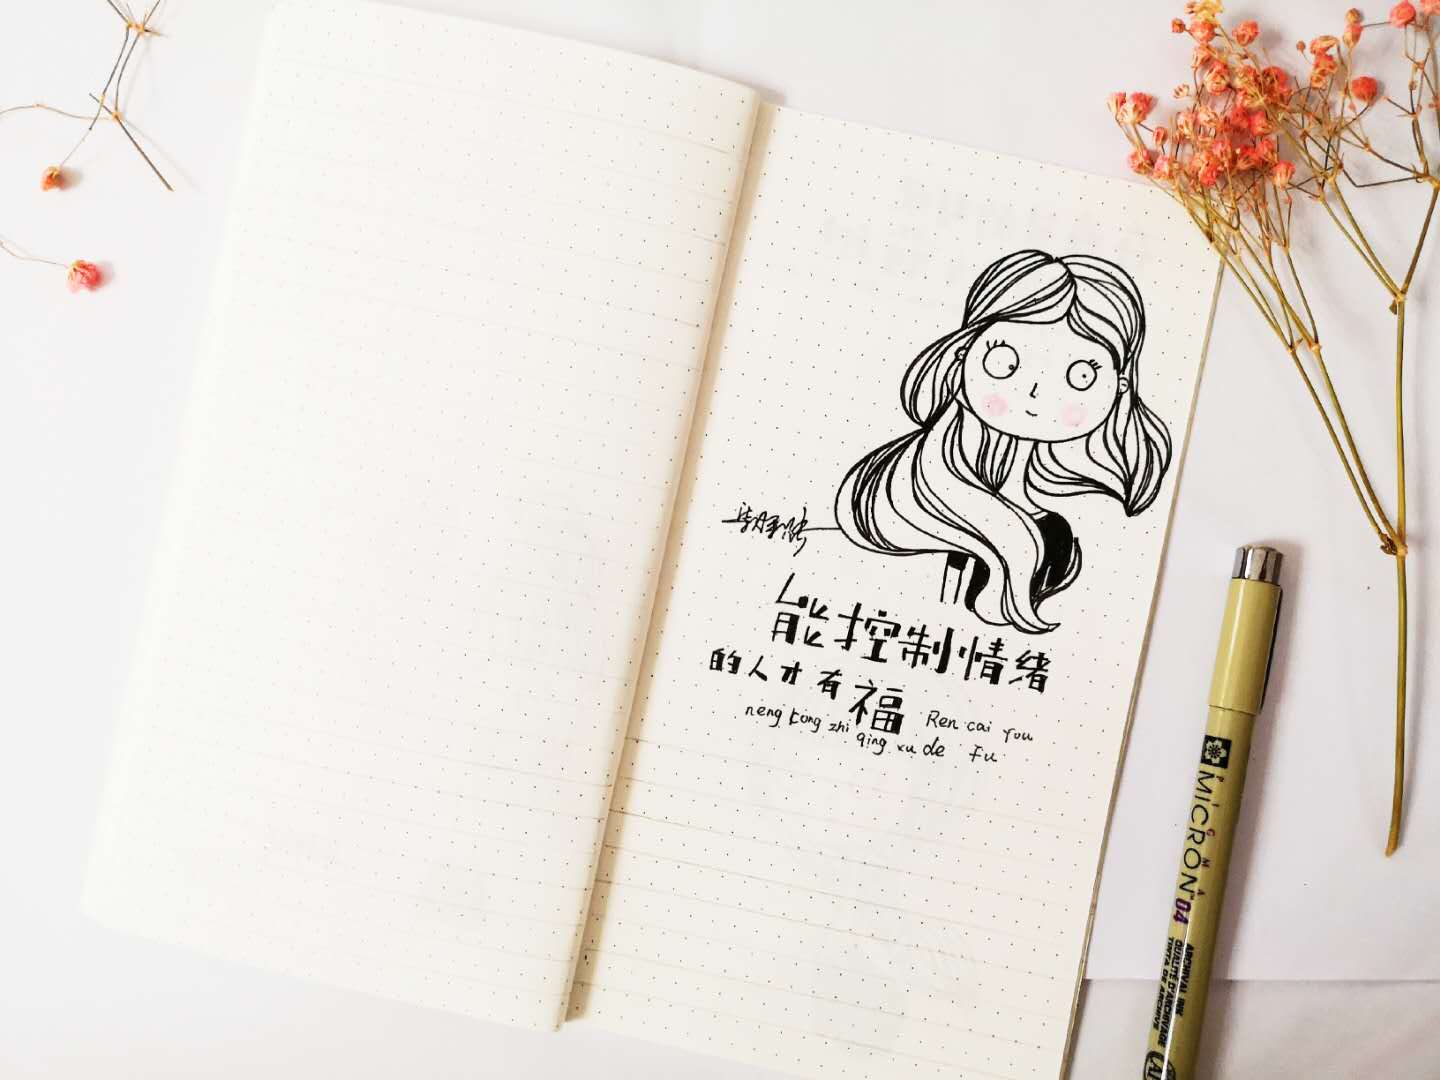 能控制情绪
的人才有福
neng kong zhi qing xu de
Ren cai you Fu
PIGMA
MICRON 04
ARCHIVAL INK
QUALITÉ D'ARCHIVAGE
TINTA DE ARCHIVE